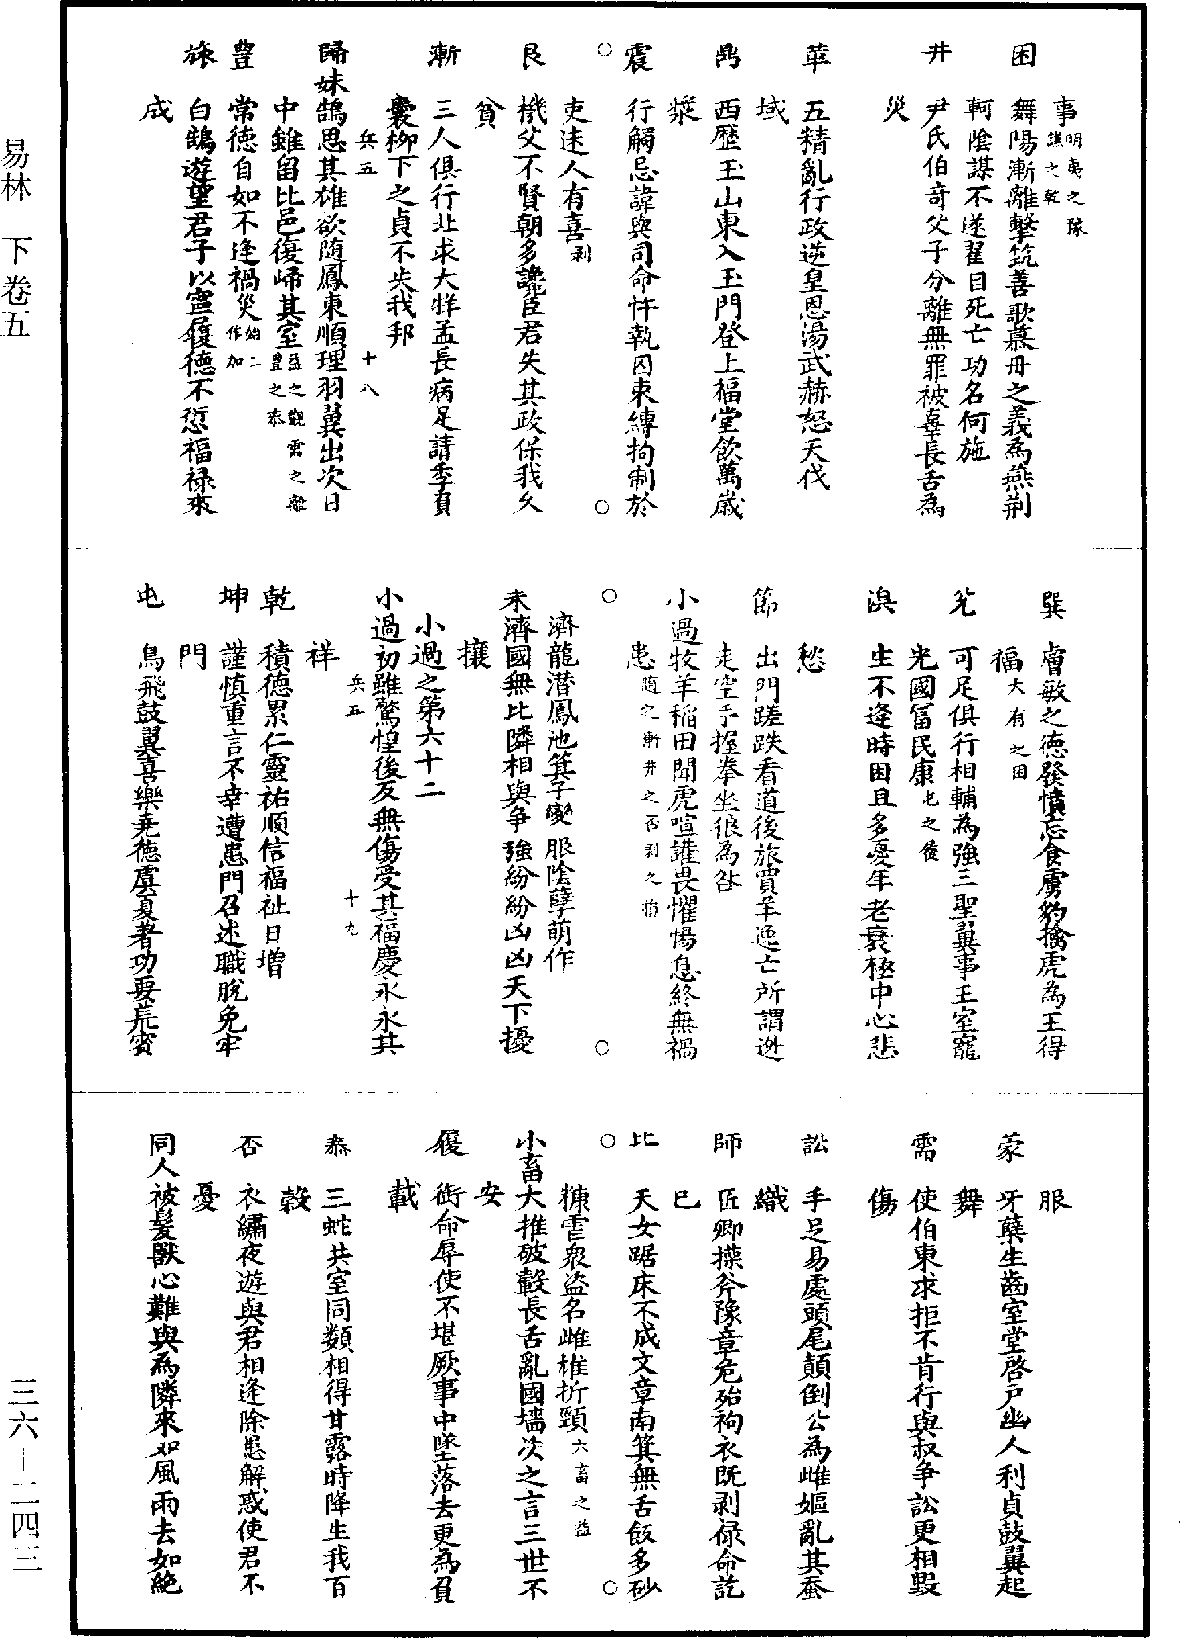 事明夷之隊謙之乾
困 舞陽漸離擊筑善歌慕丹之義為燕荆
軻陰謀不遂矐目死亡功名何施
井 尹氏伯奇父子分離無罪被辜長舌為
災
革 五精亂行政逆皇恩湯武赫怒天伐
域
鼎 西歷玉山東入玉門登上福堂飲萬歲
漿
震 行觸忌諱與司命忤執囚束縛拘制於
吏逑人有喜剥
艮 機父不賢朝多讒臣君失其政保我久
貧
漸 三人俱行北求大牂孟長病足請季負
囊柳下之貞不失我邦
兵五 十八
歸妹鵠思其雄欲随鳳東順理羽翼出次日
中雖留比邑復歸其室益之觀需之離豐之泰
豐 常德自如不逢禍災
旅 白鵠遊望君子以寧履德不愆福禄來
成
巽 膚敏之德發憤忘食虜豹擒虎為王得
福大有之困
兌 可足俱行相輔為強三聖翼事王室寵
光國富民康屯之復
渙 生不逢時困且多憂年老衰極中心悲
愁
節 出門蹉跌看道後旅買羊逸亡所謂逊
走空手握拳坐很為咎
小過牧羊稻田聞虎喧讙畏懼惕息終無禍
患随之漸井之否剥之
濟龍潜鳳池箕子變服陰孽萌作
未濟國無比隣相與爭強紛紛凶凶天下擾
攘
小過之第六十二
小過初雖驚惶後反無傷受其福慶永永其
祥
兵五 十九
乾 積德累仁靈祐順信福祉日增
坤 謹慎重言不幸遭患門召述職脫免牢
門
屯 鳥飛鼓翼喜樂堯德虞夏著功要荒賓
服
蒙 牙蘖生齒室堂啓戶幽人利貞鼓翼起
舞
需 使伯東求拒不肯行與叔爭訟更相毀
傷
訟 手足易處頭尾顛倒公為雌嫗亂其蚕
織
師 匠卿操斧豫章危殆袍衣既剥禄命訖
已
比 天女踞床不成文章南箕無舌飯多砂
糠虐衆盗名雌雄折頸六畜之益
小畜大推破轂長舌亂國墻茨之言三世不
安
履 銜命辱使不堪厥事中墜落去更為負
載
泰 三蛇共室同類相得甘露時降生我百
穀
否 衣繡夜遊與君相逢除患解惑使君不
憂
同人被髮獸心難與為隣來如風雨去如絕
易林 下卷五
三六—二四三